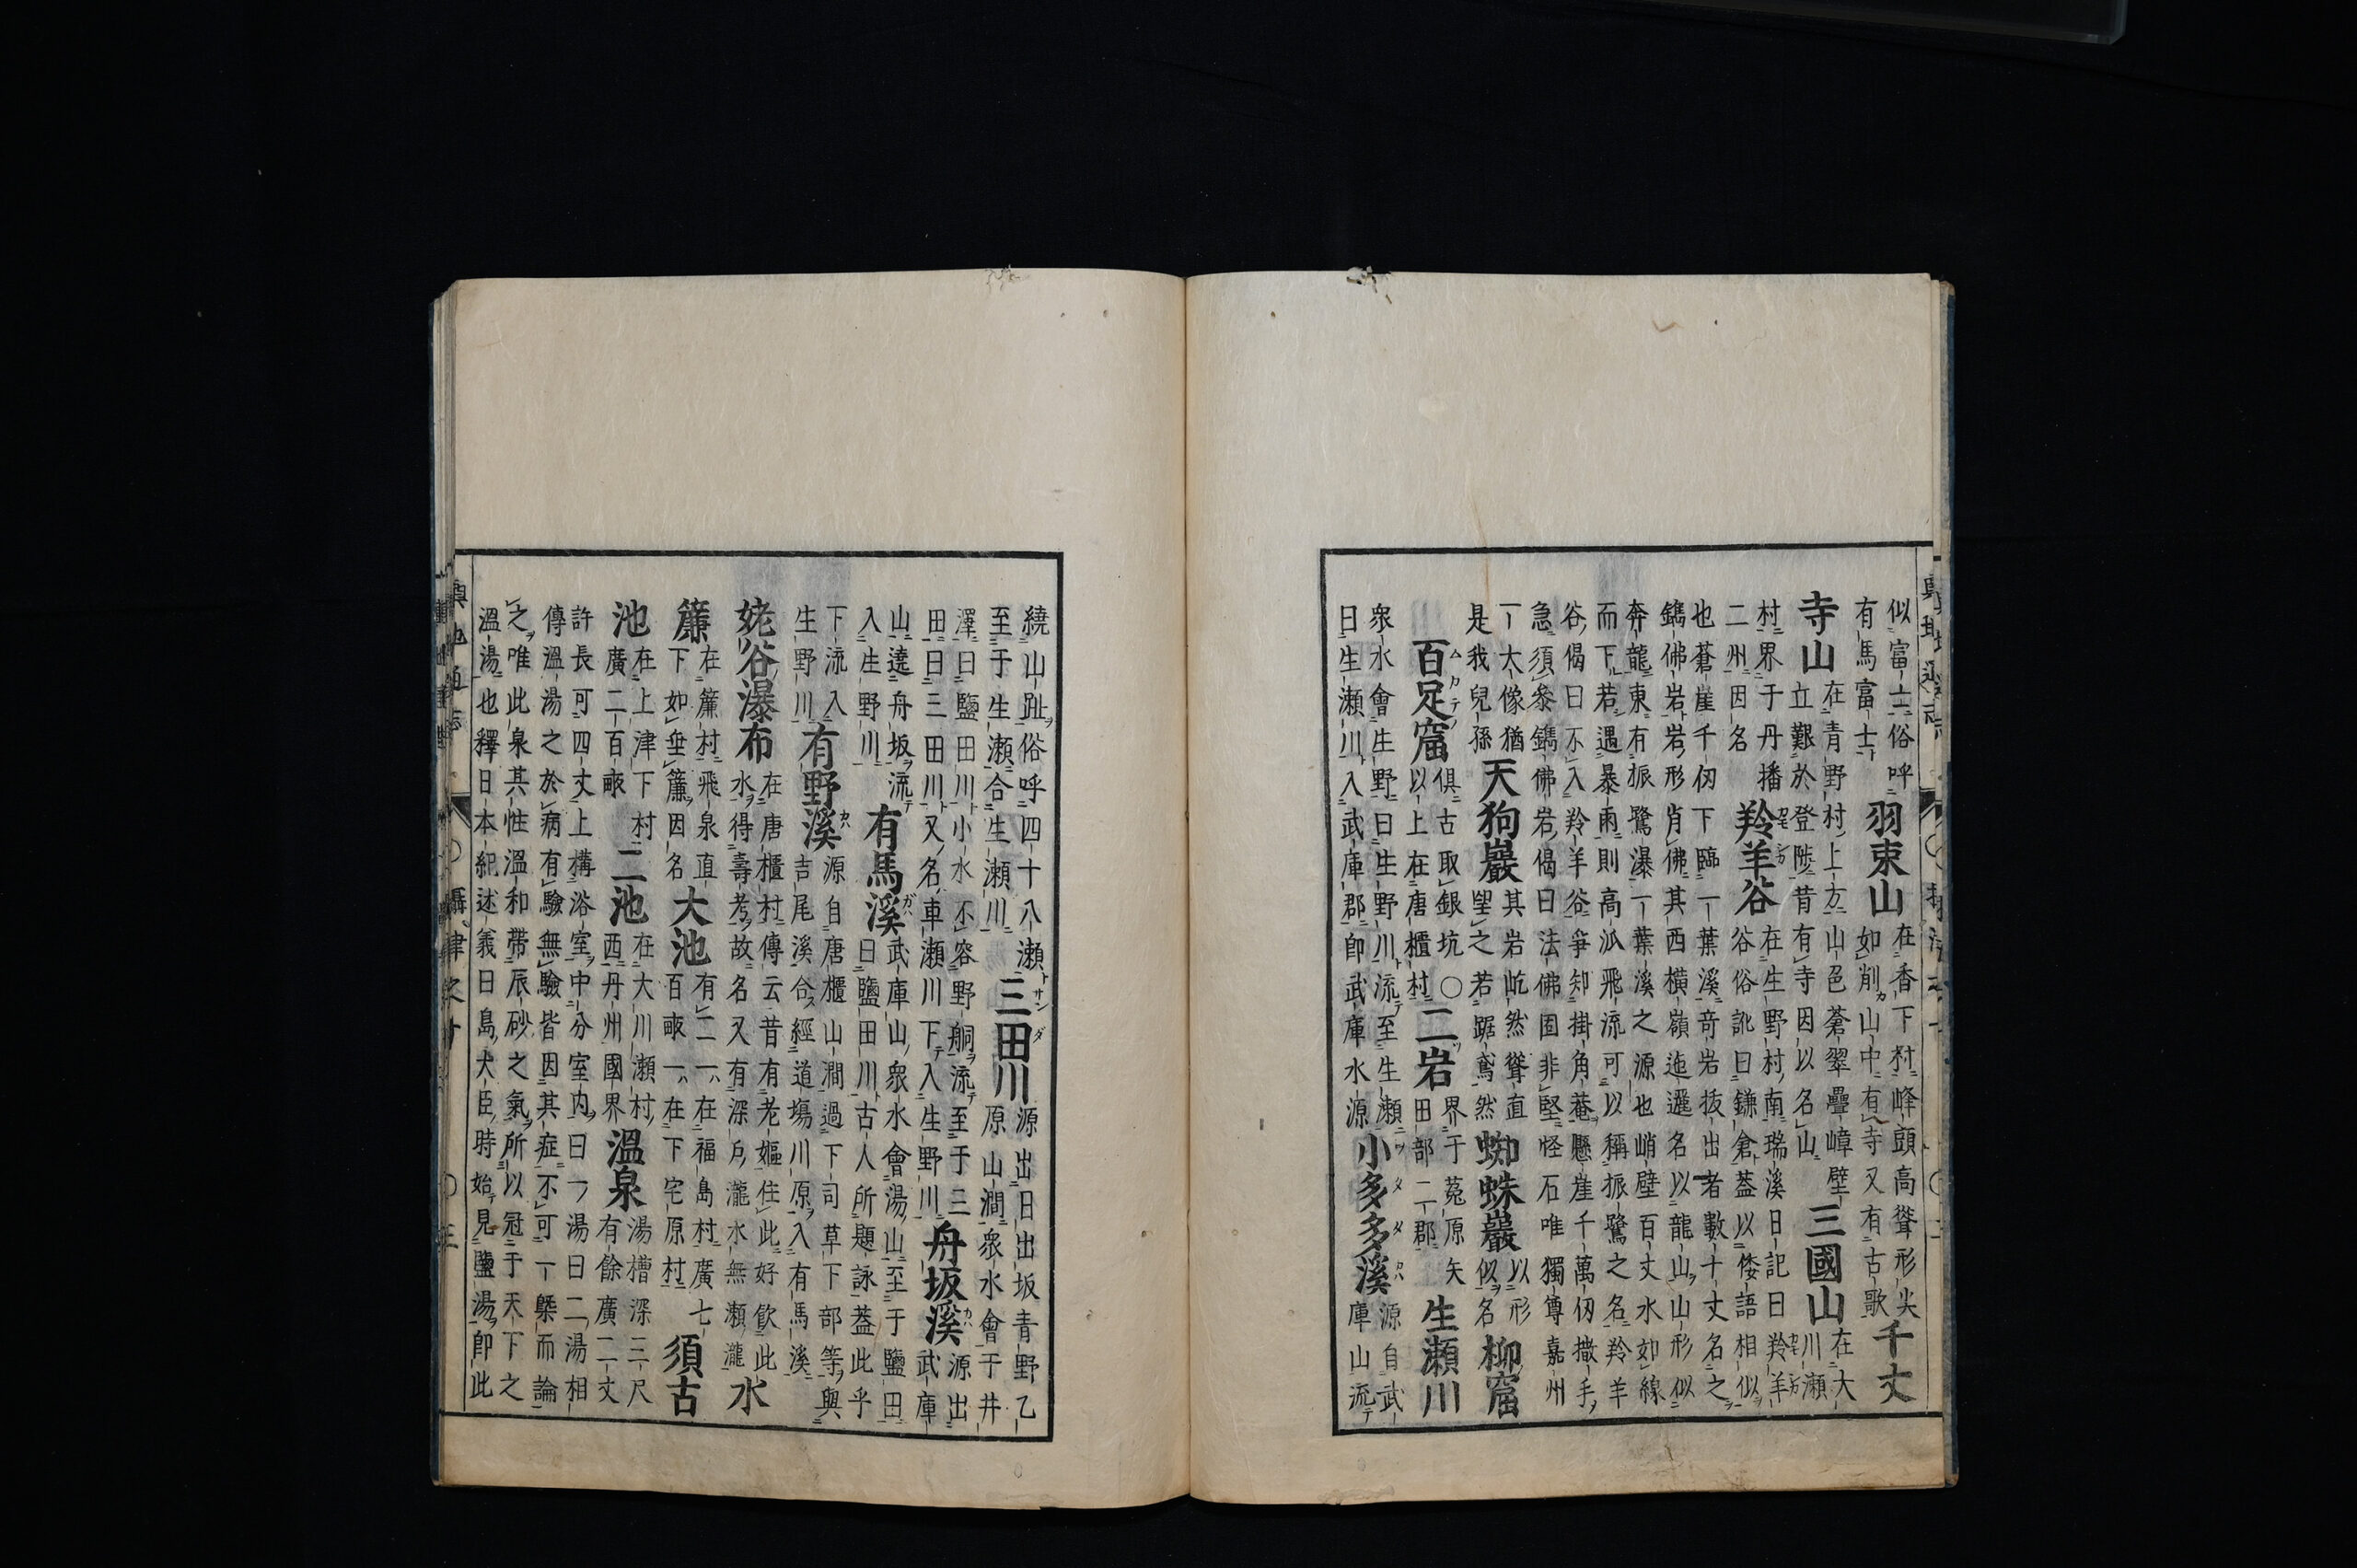 似富士俗呼
有馬富士
羽束山
在香下村峰頭高聳形尖
如削山中有寺又有古歌
千丈
寺山
在青野村上方山色蒼翠疊嶂壁
立艱於登陟昔有寺因以名山
三國山
在大
川瀬
村界于丹播
二州因名
羚羊谷
在生野村南瑞溪日記曰羚羊
谷俗訛曰鎌倉蓋以倭語相似
也蒼崖千仞下臨一葉溪竒岩抜出者數十丈名之
鐫佛岩岩形肖佛其西横嶺迤邐名以龍山山形似
奔龍東有振鷺瀑一葉溪之源也峭壁百丈水如線
而下若遇暴雨則高派飛流可以稱振鷺之名羚羊
谷偈曰不入羚羊谷爭知掛角菴懸崖千萬仞撒手
急須參鐫佛岩偈曰法佛固非堅怪石唯獨尊嘉州
一大像猶
是我兒孫
天狗巖
其岩屹然聳直
望之若踞鳶然
蜘蛛巖
以形
似名
柳窟
百足窟
俱古取銀坑○
以上在唐櫃村
二岩
界于菟原矢
田部二郡
生瀬川
衆水會生野曰生野川流至生瀬
曰生瀬川入武庫郡即武庫水源
小多多溪
源自武
庫山流
繞山趾俗呼四十八瀬
至于生瀬合生瀬川
三田川
源出日出坂青野乙
原山澗衆水會于井
澤曰鹽田川小水不容野舸流至于三
田曰三田川又名車瀬川下入生野川
舟坂溪
源出
武庫
山遶舟坂流
入生野川
有馬溪
武庫山衆水會湯山至于鹽田
曰鹽田川古人所題詠蓋此乎
下流入
生野川
有野溪
源自唐櫃山澗過下司草下部等與
吉尾溪合經道塲川原入有馬溪
姥谷瀑布
在唐櫃村傳云昔有老嫗住此好飲此
水得壽考故名又有深戸瀧水無瀬瀧
水
簾
在簾村飛泉直
下如垂簾因名
大池
有二一在福島村廣七
百畝一在下宅原村
須古
池
在上津下村
廣二百畝
二池
在大川瀬村
西丹州國界
溫泉
湯槽深三尺
有餘廣二丈
許長可四丈上構浴室中分室内曰一湯曰二湯相
傳溫湯之於病有驗無驗皆因其症不可一槩而論
之唯此泉其性溫和帶辰砂之氣所以冠于天下之
溫湯也釋日本紀述義曰島大臣時始見鹽湯即此